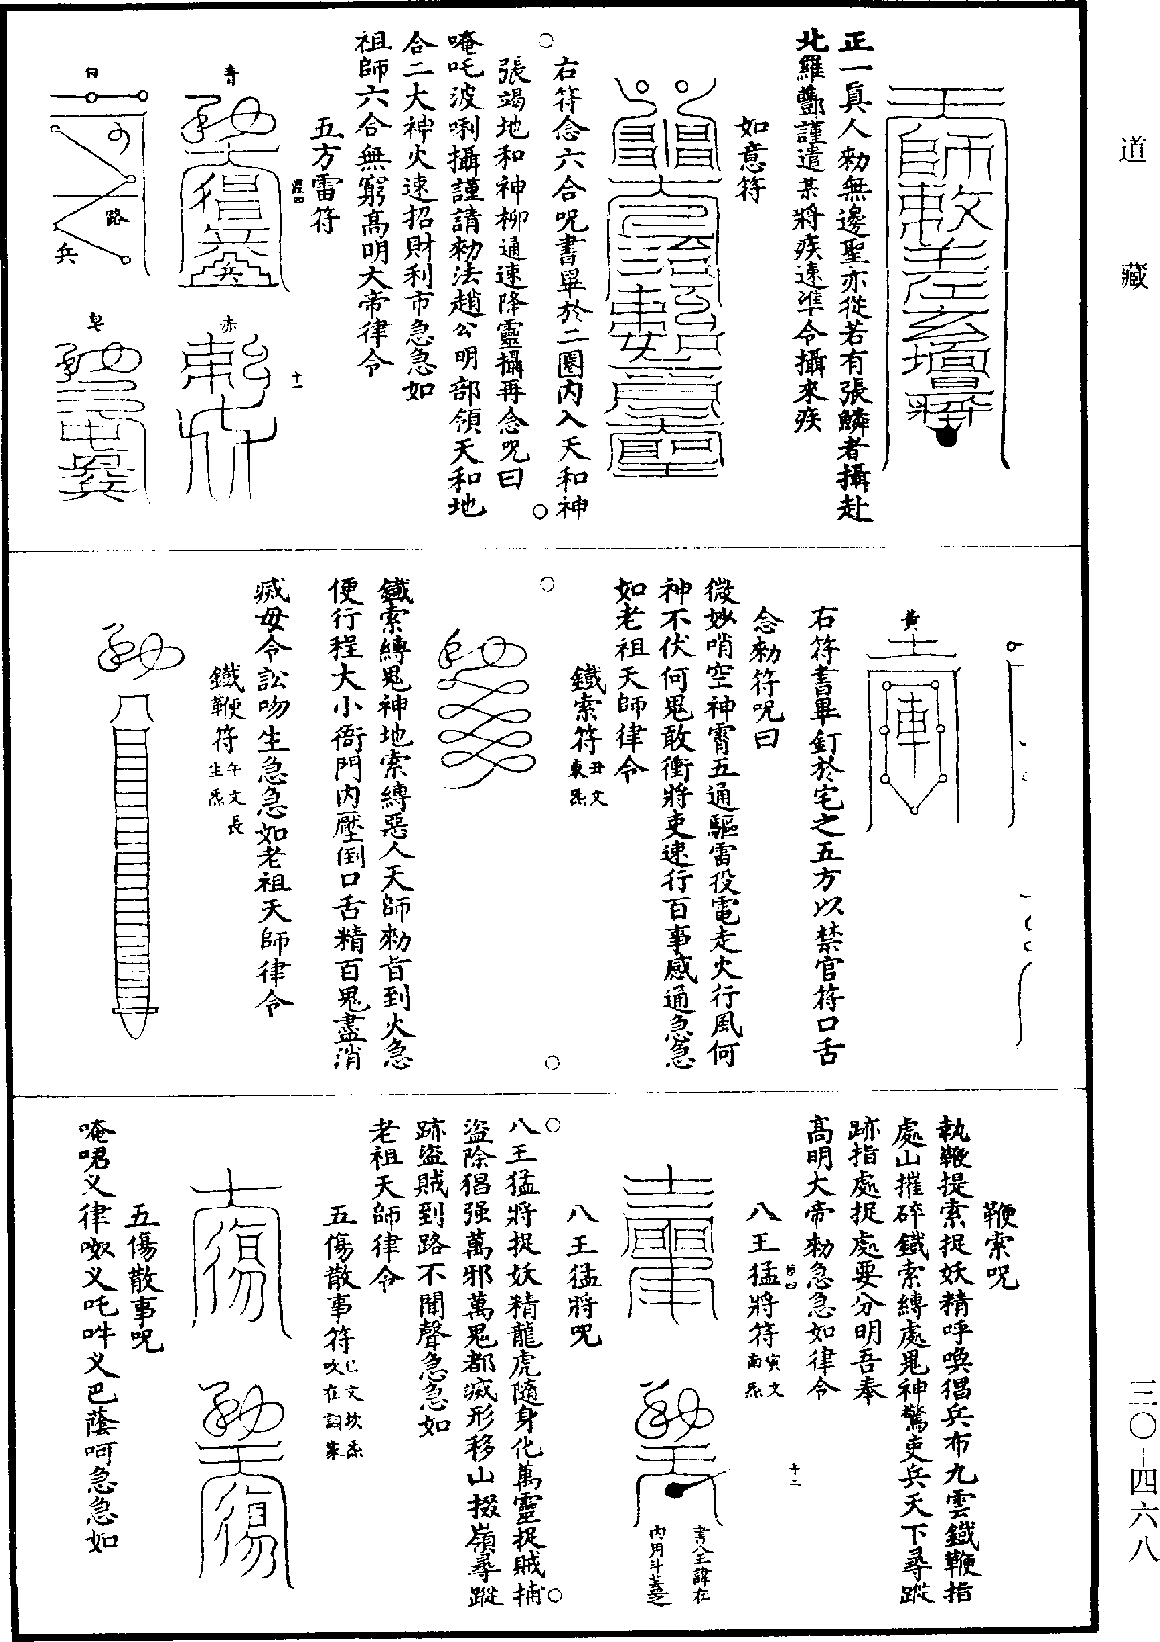 道藏
正一真人勑無邊聖亦從若有張鱗者攝赴
北羅酆謹遣某將疾速準令攝來疾
如意符
右符念六合呪書畢於二圈內入天和神
張竭地和神柳通速降靈攝再念呪曰
唵吒波唎攝謹請勑法趙公明部領天和地
合二大神火速招財利市急急如
祖師六合無窮高明大帝律令
五方雷符
青
赤
十一
白
路
兵
皂
黃
右符書畢釘於宅之五方以禁官符口舌
念勑符呪曰
微妙哨空神霄五通驅雷役電走火行風何
神不伏何鬼敢衝將吏速行百事感通急急
如老祖天師律令
鐵索符 丑文東炁
鐵索縛鬼神地索縛惡人天師勑旨到火急
便行程大小衙門內壓倒口舌精百鬼盡消
滅毋令訟吻生急急如老祖天師律令
鐵鞭符 午文長生炁
鞭索呪
執鞭提索捉妖精呼喚猖兵布九雲鐵鞭指
處山摧碎鐵索縛處鬼神驚吏兵天下尋蹤
跡指處捉處要分明吾奉
高明大帝勑急急如律令
八王猛將符 寅文南炁
十二
書八王諱在
內用斗蓋之
八王猛將呪
八王猛將捉妖精龍虎隨身化萬靈捉賊捕
盜除猖强萬邪萬鬼都滅形移山掇嶺尋蹤
跡盜賊到路不聞聲急急如
老祖天師律令
五傷散事符
五傷散事呪
唵啒义律呶义吒吽义巴蔭呵急急如
三〇-四六八